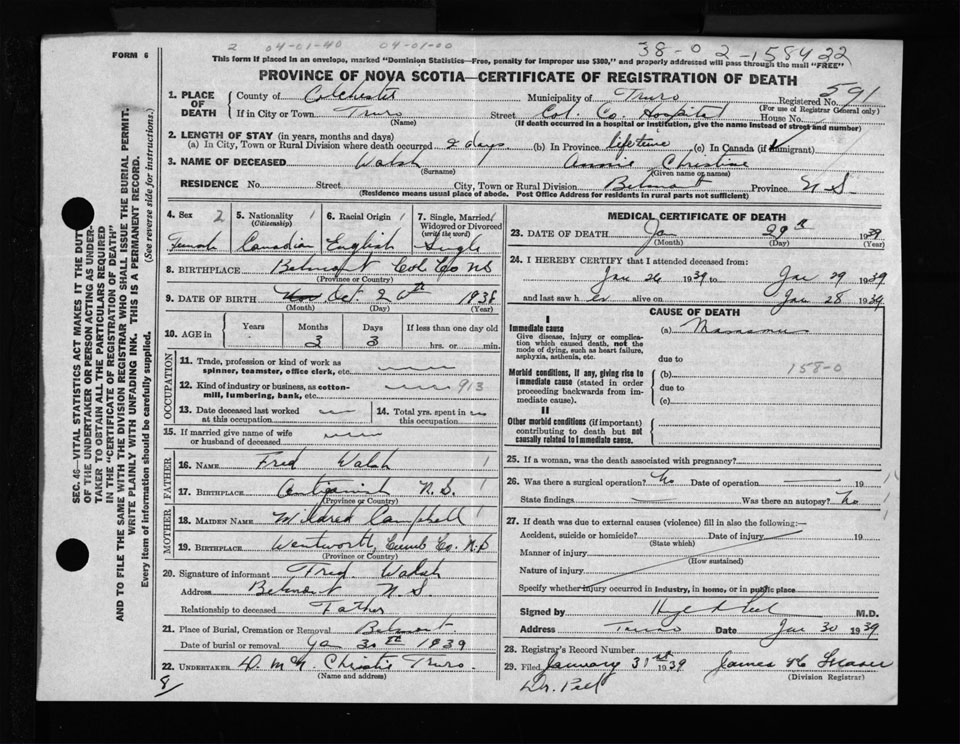 FORM 6
2 04-01-40 04-01-00 38-02-158422
This form if placed in an envelope, marked "Dominion Statistics—Free, penalty for improper use $300," and properly addressed will pass through the mail "FREE"
PROVINCE OF NOVA SCOTIA—CERTIFICATE OF REGISTRATION OF DEATH
1. PLACE OF DEATH County of Colchester Municipality of Truro Registered No. 591
(For use of Registrar General only)
If in City or Town Truro (Name) Street Col. Co. Hospital House No.
(If death occurred in a hospital or institution, give the name instead of street and number)
2. LENGTH OF STAY (in years, months and days)
(a) In City, Town or Rural Division where death occurred 2 days (b) In Province lifetime (c) In Canada (if immigrant)
3. NAME OF DECEASED Walsh Annie Christine
(Surname) (Given name or names)
RESIDENCE No. Street City, Town or Rural Division Belmont Province N S
(Residence means usual place of abode. Post Office Address for residents in rural parts not sufficient)
4. Sex 2 5. Nationality 1 (Citizenship) 6. Racial Origin 1 7. Single, Married, Widowed or Divorced (write the word) 1
Female Canadian English Single
8. BIRTHPLACE Belmont Col Co NS
(Province or Country)
9. DATE OF BIRTH Oct 26th 1938
(Month) (Day) (Year)
10. AGE in Years Months Days If less than one day old
3 3 hrs. or min.
OCCUPATION
11. Trade, profession or kind of work as spinner, teamster, office clerk, etc.
12. Kind of industry or business, as cotton-mill, lumbering, bank, etc. 913
13. Date deceased last worked at this occupation
14. Total yrs. spent in this occupation
15. If married give name of wife or husband of deceased
FATHER
16. NAME Fred Walsh 1
17. BIRTHPLACE Antigonish N.S. 1
(Province or Country)
MOTHER
18. MAIDEN NAME Mildred Campbell 1
19. BIRTHPLACE Wentworth, Cumb Co. N.S
(Province or Country)
20. Signature of informant Fred Walsh
Address Belmont N S
Relationship to deceased Father
21. Place of Burial, Cremation or Removal Belmont
Date of burial or removal Ja 30th 1939
22. UNDERTAKER Christie Truro.
(Name and address)
8/
MEDICAL CERTIFICATE OF DEATH
23. DATE OF DEATH Jan 29th 1939
(Month) (Day) (Year)
24. I HEREBY CERTIFY that I attended deceased from:
Jan 26 1939 to Jan 29 1939
and last saw her alive on Jan 28 1939
CAUSE OF DEATH
I
Immediate cause (a)
Give disease, injury or complication which caused death, not the mode of dying, such as heart failure, asphyxia, asthenia, etc.
due to
Morbid conditions, if any, giving rise to immediate cause (stated in order proceeding backwards from immediate cause). (b) 158-0
due to
(c)
II
Other morbid conditions (if important) contributing to death but not causally related to immediate cause.
25. If a woman, was the death associated with pregnancy?
26. Was there a surgical operation? No Date of operation 19
State findings Was there an autopsy? No
27. If death was due to external causes (violence) fill in also the following:—
Accident, suicide or homicide? Date of injury 19
(State which)
Manner of injury
(How sustained)
Nature of injury
Specify whether injury occurred in industry, in home, or in public place
Signed by M.D.
Address Truro Date Jan 30 1939
28. Registrar's Record Number
29. Filed January 31st 1939 James Fraser
(Division Registrar)
Dr. Peel
SEC. 46—VITAL STATISTICS ACT MAKES IT THE DUTY
OF THE UNDERTAKER OR PERSON ACTING AS UNDERTAKER TO OBTAIN ALL THE PARTICULARS REQUIRED
IN THE "CERTIFICATE OF REGISTRATION OF DEATH"
AND TO FILE THE SAME WITH THE DIVISION REGISTRAR WHO SHALL ISSUE THE BURIAL PERMIT.
WRITE PLAINLY WITH UNFADING INK. THIS IS A PERMANENT RECORD.
Every item of information should be carefully supplied. (See reverse side for instructions.)